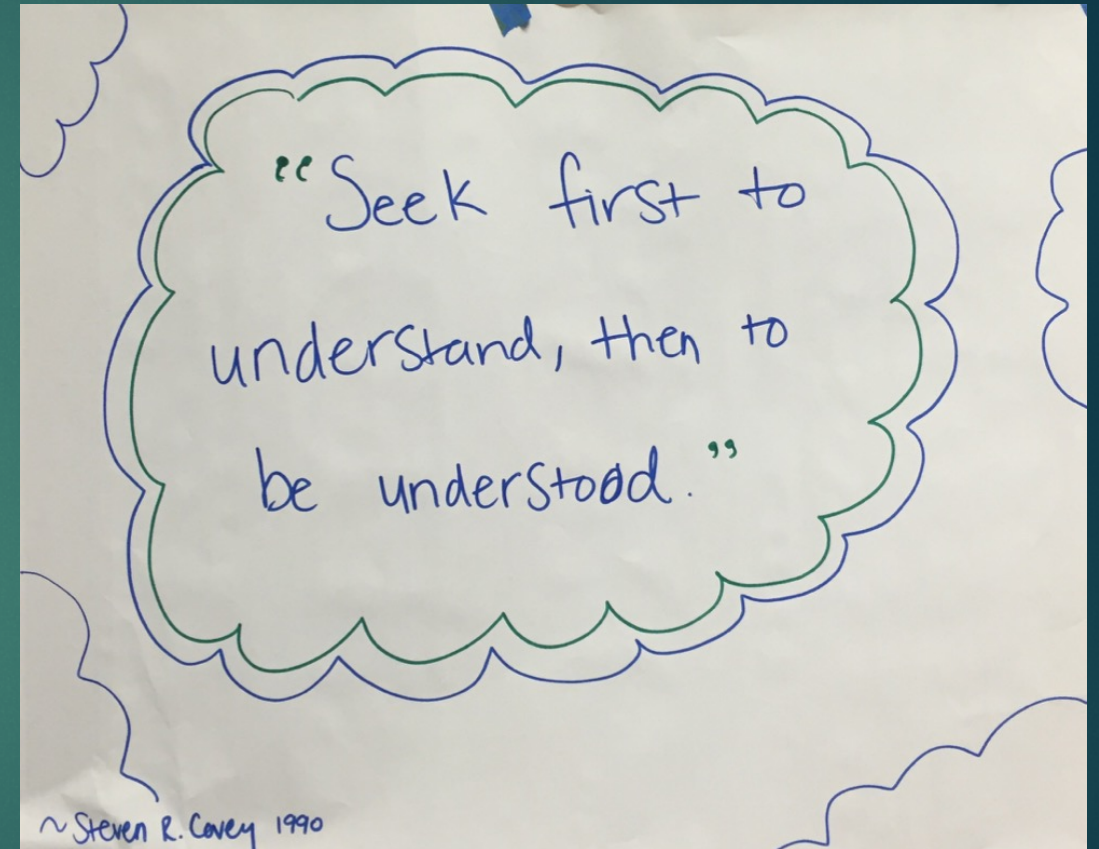 “Seek first to
understand, then to
be understood.”
~ Steven R. Covey 1990